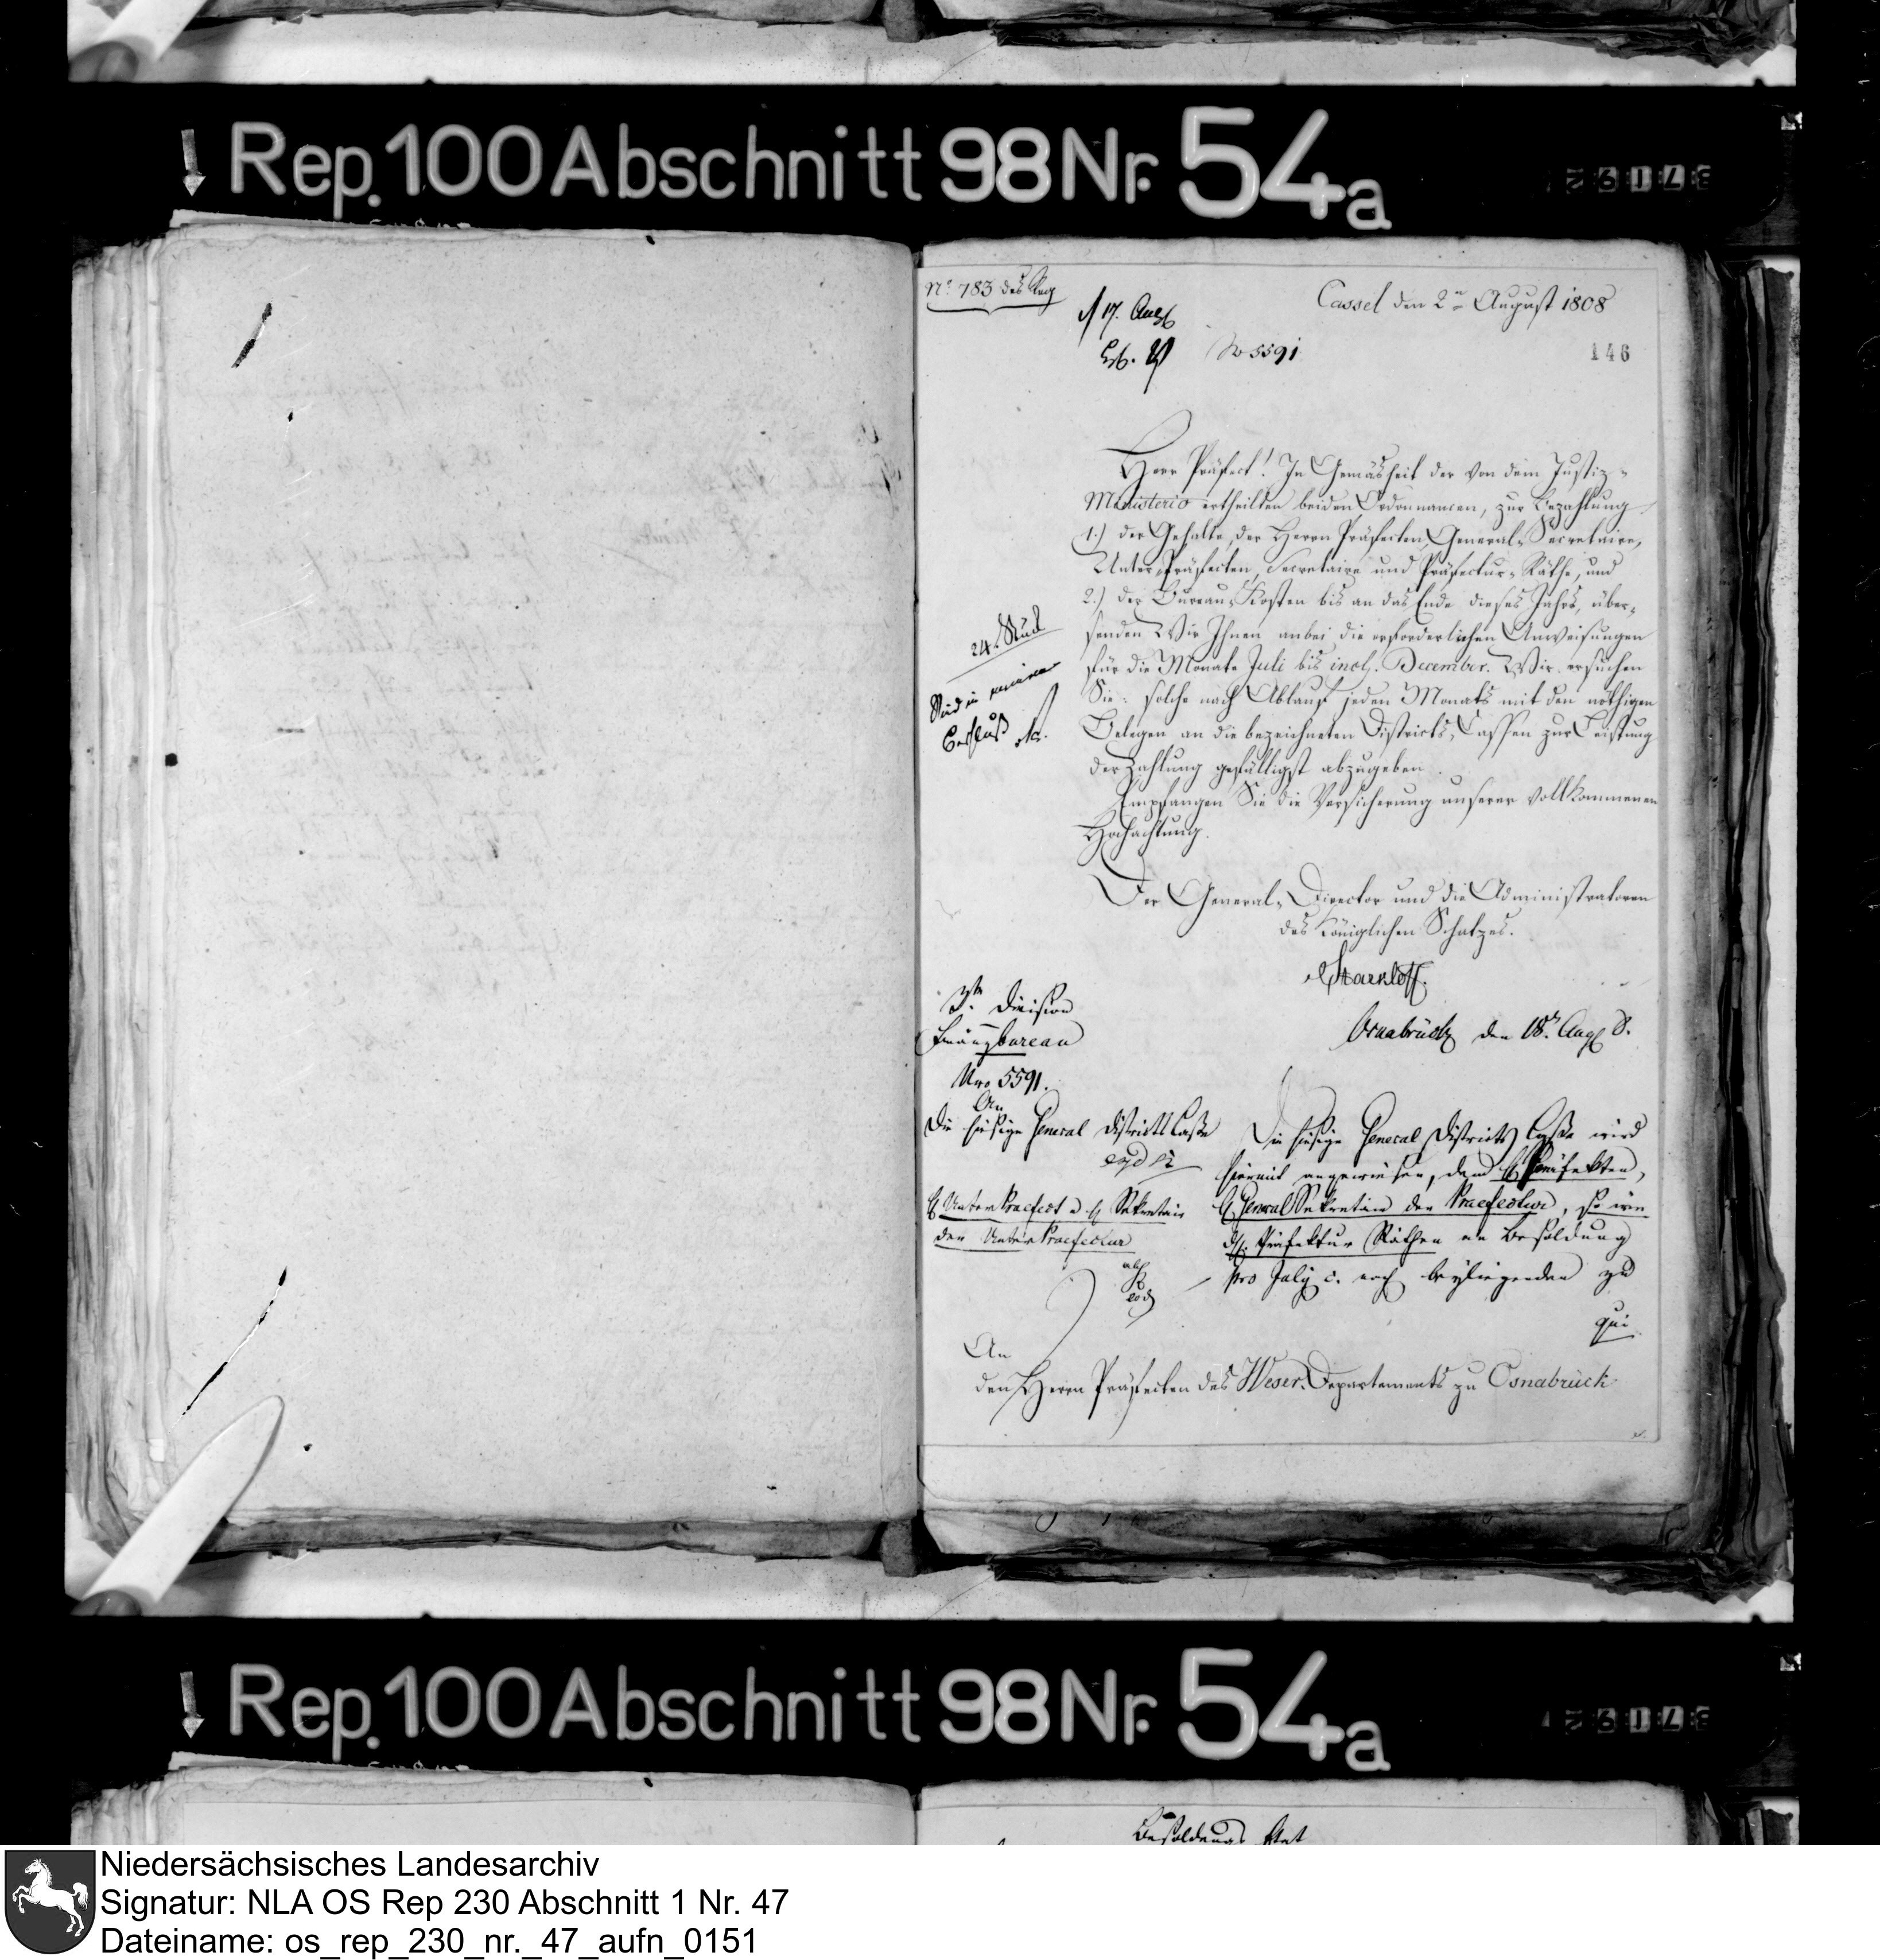 Rep. 100 Abschnitt 98 Nr. 54a
No 783 des Reg
Cassel den 2n August 1808
17. Aug
No 5591
146
Herr Präfect! In Gemäsheit der von dem Justiz-
Ministerio ertheilten beiden Ordonnancen, zur Bezahlung
1.) der Gehalte, der Herrn Präfecten, General-Secretaire,
Unter-Präfecten, Secretaire und Präfectur-Räthe, und
2.) der Bureau-Kosten bis an das Ende dieses Jahrs, über-
senden Wir Ihnen anbei die erforderlichen Anweisungen
für die Monate Juli bis incl. December. Wir ersuchen
Sie: solche nach Ablauf jeden Monats mit den nöthigen
Belegen an die bezeichneten Districts-Cassen zur Leistung
der Zahlung gefälligst abzugeben.
Empfangen Sie die Versicherung unserer vollkommenen
Hochachtung.
24. Stück
Sind in meinem
Beschluß
Der General-Director und die Administratoren
des Königlichen Schatzes.
Starkloff.
3te Division
Finanzbureau
Nro 5591.
Osnabrück den 18n Aug 8.
An
die hiesige General Districts Casse
Unter Praefect u. Sekretair
der Unter Praefectur
Die hiesige General Districts Casse wird
hiermit angewiesen, dem Präfekten,
General Sekretair der Praefectur, so wie
Präfektur Räthen an Besoldung
pro July c. nach beyliegenden zu
qui
An
den Herrn Präfecten des Weser-Departements zu Osnabrück
Rep. 100 Abschnitt 98 Nr. 54a
Besoldungs Etat
Niedersächsisches Landesarchiv
Signatur: NLA OS Rep 230 Abschnitt 1 Nr. 47
Dateiname: os_rep_230_nr._47_aufn_0151